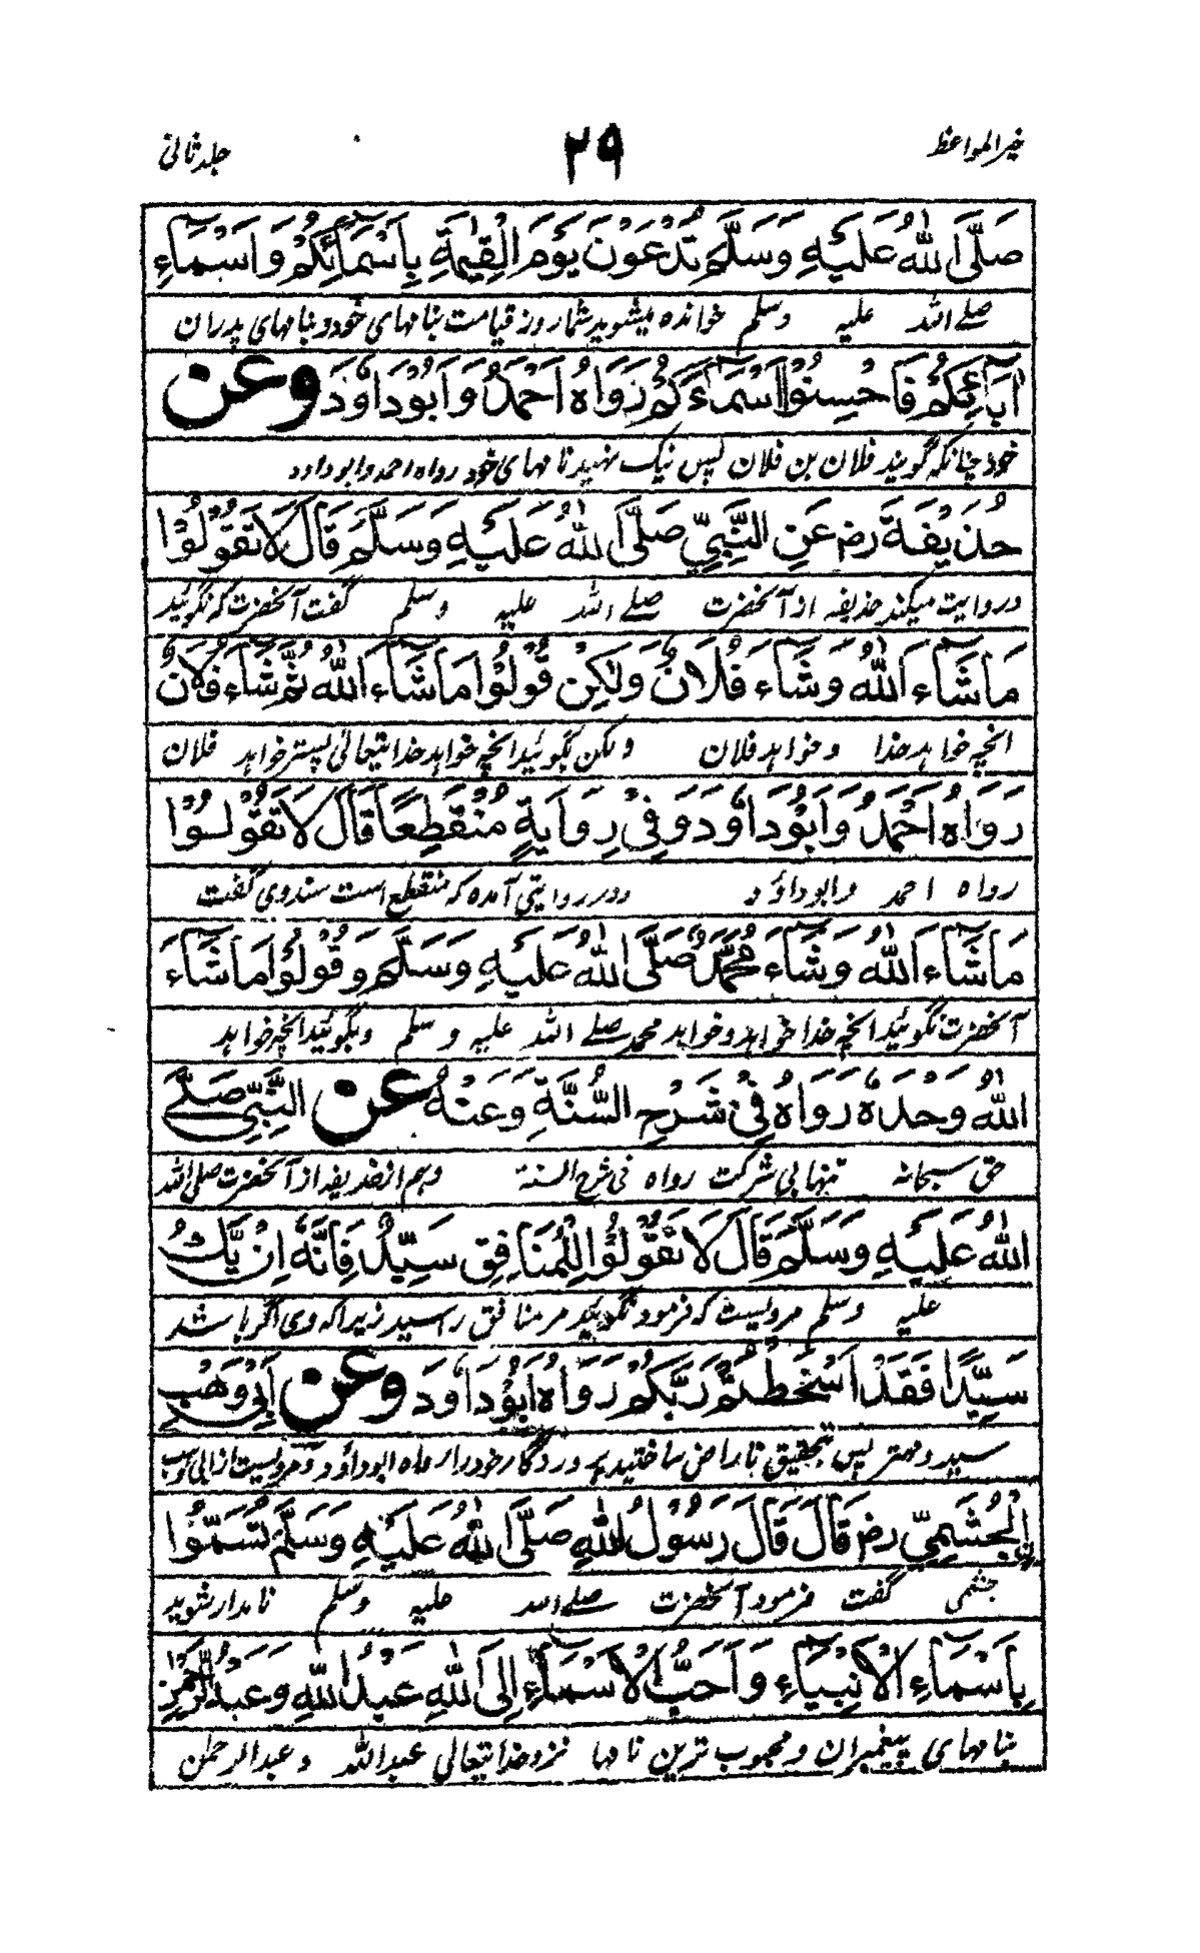 خیر المواعظ ۲۹ جلد ثانی
صَلَّى اللهُ عَلَيْهِ وَسَلَّمَ تُدْعَوْنَ يَوْمَ الْقِيٰمَةِ بِاَسْمَآئِكُمْ وَاَسْمَآءِ
صلے اللہ علیہ وسلم خوانده میشوید شما روز قیامت بنامهای خود و بنامهای پدران
اٰبَآئِكُمْ فَاَحْسِنُوْا اَسْمَآءَكُمْ رَوَاهُ اَحْمَدُ وَاَبُوْدَاوٗدَ وعن
خود چنانکه گویند فلان بن فلان پس نیک نهید نامهای خود رواه احمد و ابوداود
حُذَيْفَةَ رض عَنِ النَّبِيِّ صَلَّى اللهُ عَلَيْهِ وَسَلَّمَ قَالَ لَا تَقُوْلُوْا
و روایت میکند حذیفه از آنحضرت صلے اللہ علیہ وسلم گفت آنحضرت که نگوئید
مَا شَآءَ اللهُ وَشَآءَ فُلَانٌ وَلٰكِنْ قُوْلُوْا مَا شَآءَ اللهُ ثُمَّ شَآءَ فُلَانٌ
انچه خواهد خدا و خواهد فلان ولکن بگوئید انچه خواهد خدا یتعالی پستر خواهد فلان
رَوَاهُ اَحْمَدُ وَاَبُوْدَاوٗدَ وَفِيْ رِوَايَةٍ مُنْقَطِعًا قَالَ لَا تَقُوْلُوْا
رواه احمد و ابوداؤد و در روایتی آمده که منقطع است سند وی گفت
مَا شَآءَ اللهُ وَشَآءَ مُحَمَّدٌ صَلَّى اللهُ عَلَيْهِ وَسَلَّمَ وَقُوْلُوْا مَا شَآءَ
آنحضرت نگوئید انچه خدا خواهد و خواهد محمد صلے اللہ علیہ وسلم و بگوئید انچه خواهد
اللهُ وَحْدَهٗ رَوَاهُ فِيْ شَرْحِ السُّنَّةِ وَعَنْهُ عن النَّبِيِّ صَلَّے
حق سبحانه تنها بی شرکت رواه فی شرح السنة و هم از حذیفه از آنحضرت صلی اللہ
اللهُ عَلَيْهِ وَسَلَّمَ قَالَ لَا تَقُوْلُوْا لِلْمُنَافِقِ سَيِّدٌ فَاِنَّهٗ اِنْ يَّكُ
علیہ وسلم مرویست که فرمود نگوئید مر منافق را سید زیرا که وی اگر باشد
سَيِّدًا فَقَدْ اَسْخَطْتُمْ رَبَّكُمْ رَوَاهُ اَبُوْدَاوٗدَ وعن اَبِيْ وَهْبِ
سید و مهتر پس بتحقیق ناراض ساختید پروردگار خود را رواه ابوداؤد و مرویست از ابی وهب
نِ الْجُشَمِيِّ رض قَالَ قَالَ رَسُوْلُ اللهِ صَلَّى اللهُ عَلَيْهِ وَسَلَّمَ تَسَمَّوْا
جشمی گفت فرمود آنحضرت صلے اللہ علیہ وسلم نامدار شوید
بِاَسْمَآءِ الْاَنْبِيَآءِ وَاَحَبُّ الْاَسْمَآءِ اِلَى اللهِ عَبْدُ اللهِ وَعَبْدُ الرَّحْمٰنِ
بنامهای پیغمبران و محبوب ترین نامها نزد خدا یتعالی عبد اللہ و عبد الرحمٰن